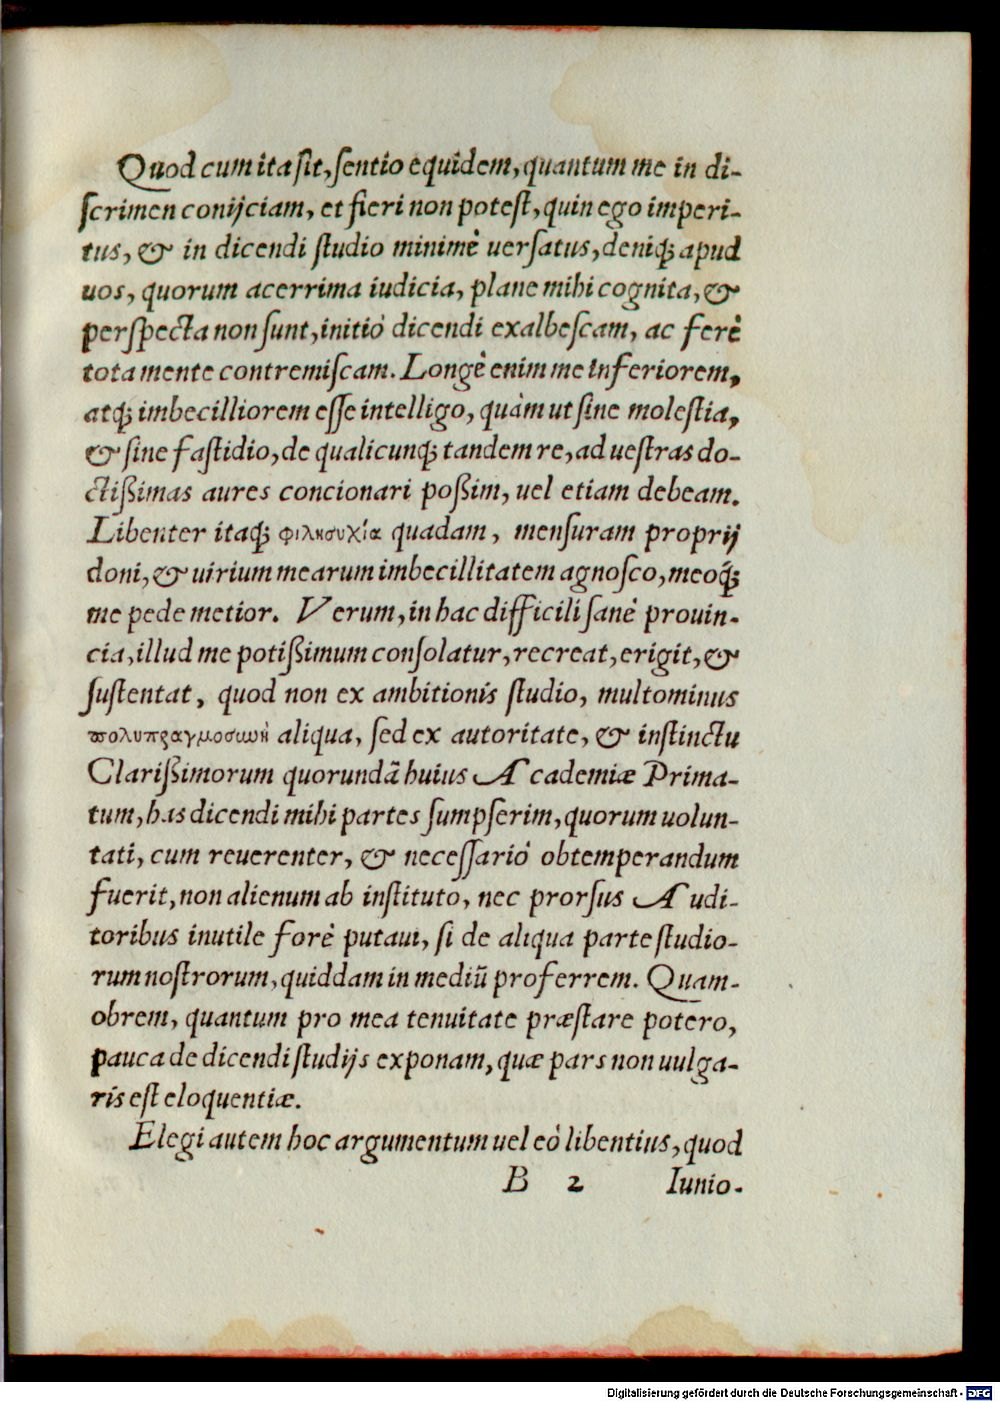 Quod cum ita sit, sentio equidem, quantum me in di-
scrimen conijciam, et fieri non potest, quin ego imperi-
tus, & in dicendi studio minimè uersatus, deniq; apud
uos, quorum acerrima iudicia, plane mihi cognita, &
perspecta non sunt, initiò dicendi exalbescam, ac ferè
tota mente contremiscam. Longè enim me inferiorem,
atq; imbecilliorem esse intelligo, quàm ut sine molestia,
& sine fastidio, de qualicunq; tandem re, ad uestras do-
ctißimas aures concionari poßim, uel etiam debeam.
Libenter itaq; quadam, mensuram proprij
doni, & uirium mearum imbecillitatem agnosco, meoq́;
me pede metior. Verum, in hac difficili sanè prouin-
cia, illud me potißimum consolatur, recreat, erigit, &
sustentat, quod non ex ambitionis studio, multominus
πολυπραγμοσωὴ aliqua, sed ex autoritate, & instinctu
Clarißimorum quorundã huius Academiæ Prima-
tum, has dicendi mihi partes sumpserim, quorum uolun-
tati, cum reuerenter, & necessariò obtemperandum
fuerit, non alienum ab instituto, nec prorsus Audi-
toribus inutile forè putaui, si de aliqua parte studio-
rum nostrorum, quiddam in mediũ proferrem. Quam-
obrem, quantum pro mea tenuitate præstare potero,
pauca de dicendi studijs exponam, quæ pars non uulga-
ris est eloquentiæ.
Elegi autem hoc argumentum uel eò libentius, quod
B 2 Iunio-
Digitalisierung gefördert durch die Deutsche Forschungsgemeinschaft - DFG